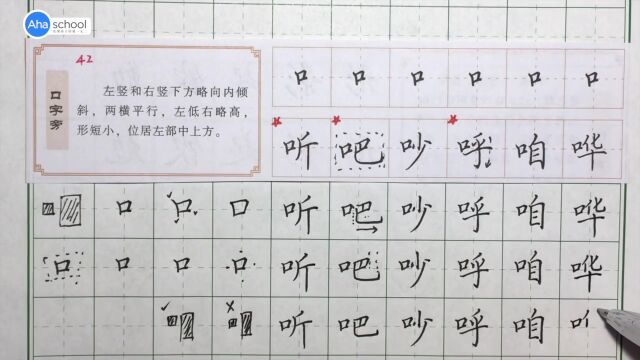 Aha school
42
口字旁
左竖和右竖下方略向内倾
斜，两横平行，左低右略高，
形短小，位居左部中上方。
口 口 口 口 口 口
听 吧 吵 呼 咱 哗
口 口 口 听 吧 吵 呼 咱 哗
口 口 口 口 听 吧 吵 呼 咱 哗
听 吧 吵 呼 咱